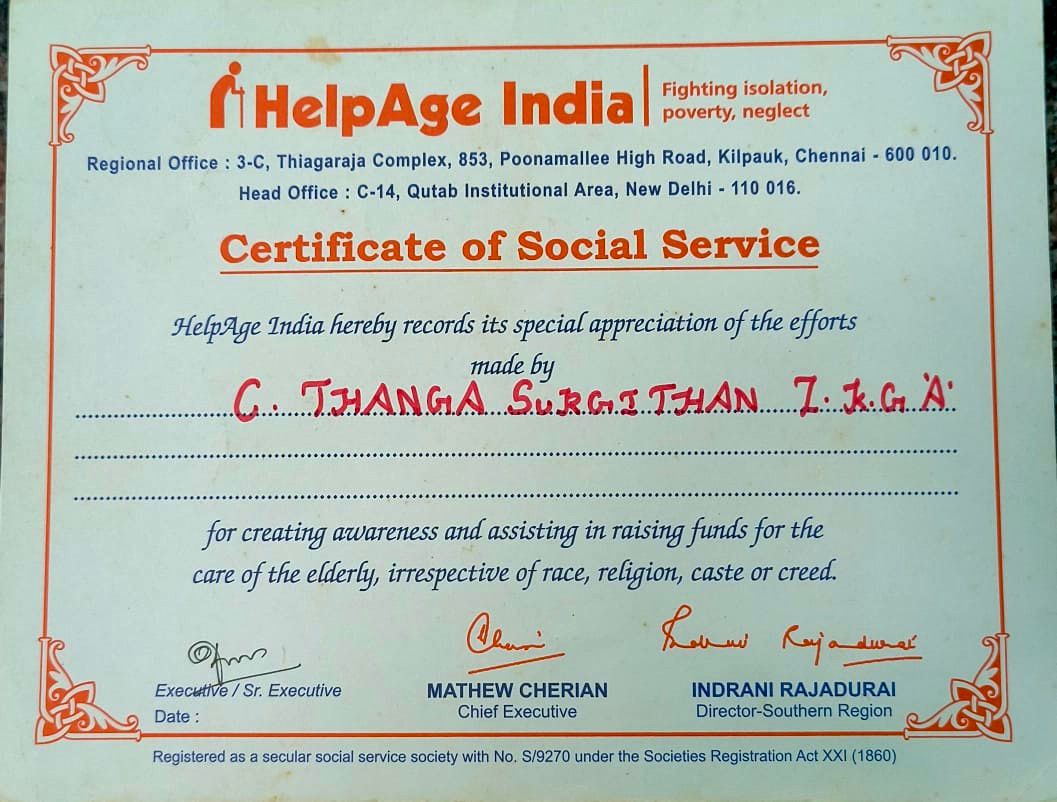 HelpAge India
Fighting isolation,
poverty, neglect
Regional Office : 3-C, Thiagaraja Complex, 853, Poonamallee High Road, Kilpauk, Chennai - 600 010.
Head Office : C-14, Qutab Institutional Area, New Delhi - 110 016.
Certificate of Social Service
HelpAge India hereby records its special appreciation of the efforts
made by
C. THANGA SURGITHAN L.K.G 'A'
for creating awareness and assisting in raising funds for the
care of the elderly, irrespective of race, religion, caste or creed.
Cherian
Indrani Rajadurai
Executive / Sr. Executive
Date :
MATHEW CHERIAN
Chief Executive
INDRANI RAJADURAI
Director-Southern Region
Registered as a secular social service society with No. S/9270 under the Societies Registration Act XXI (1860)